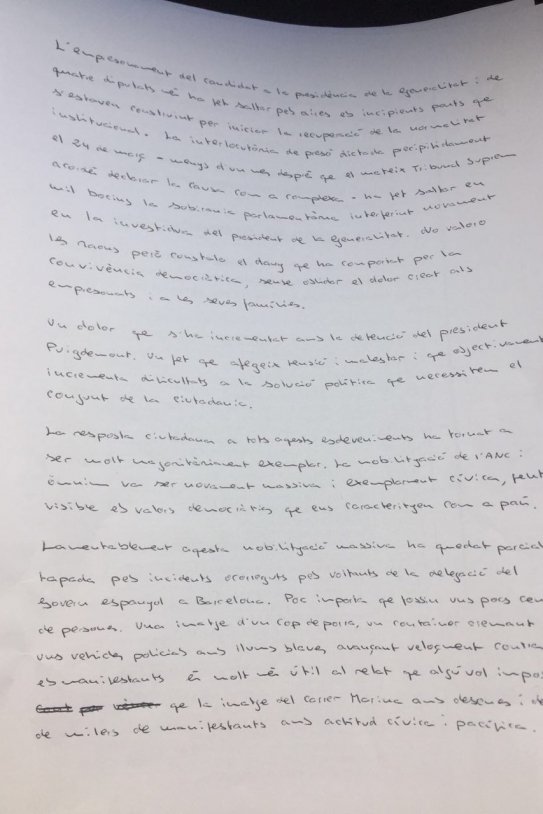 L'empresonament del candidat a la presidència de la Generalitat i de
quatre diputats més ha fet saltar pels aires els incipients ponts que
s'estaven construint per iniciar la recuperació de la normalitat
institucional. La interlocutòria de presó dictada precipitadament
el 24 de març - menys d'un mes després que el mateix Tribunal Suprem
acordés declarar la causa com a complexa - ha fet saltar en
mil bocins la sobirania parlamentària interferint novament
en la investidura del president de la Generalitat. No valoro
les raons però constato el dany que ha comportat per la
convivència democràtica, sense oblidar el dolor creat als
empresonats i a les seves famílies.
Un dolor que s'ha incrementat amb la detenció del president
Puigdemont. Un fet que afegeix tensió i malestar i que objectivament
incrementa dificultats a la solució política que necessitem el
conjunt de la ciutadania.
La resposta ciutadana a tots aquests esdeveniments ha tornat a
ser molt majoritàriament exemplar. La mobilització de l'ANC i
Òmnium va ser novament massiva i exemplarment cívica, fent
visible els valors democràtics que ens caracteritzen com a país.
Lamentablement aquesta mobilització massiva ha quedat parcial
tapada pels incidents ocorreguts pels voltants de la delegació del
Govern espanyol a Barcelona. Poc importa que fossin uns pocs cen
de persones. Una imatge d'un cop de porra, un container cremant
uns vehicles policials amb llums blaves avançant veloçment contra
els manifestants és molt més útil al relat que algú vol impos
que la imatge del carrer Marina amb desenes i de
de milers de manifestants amb actitud cívica i pacífica.